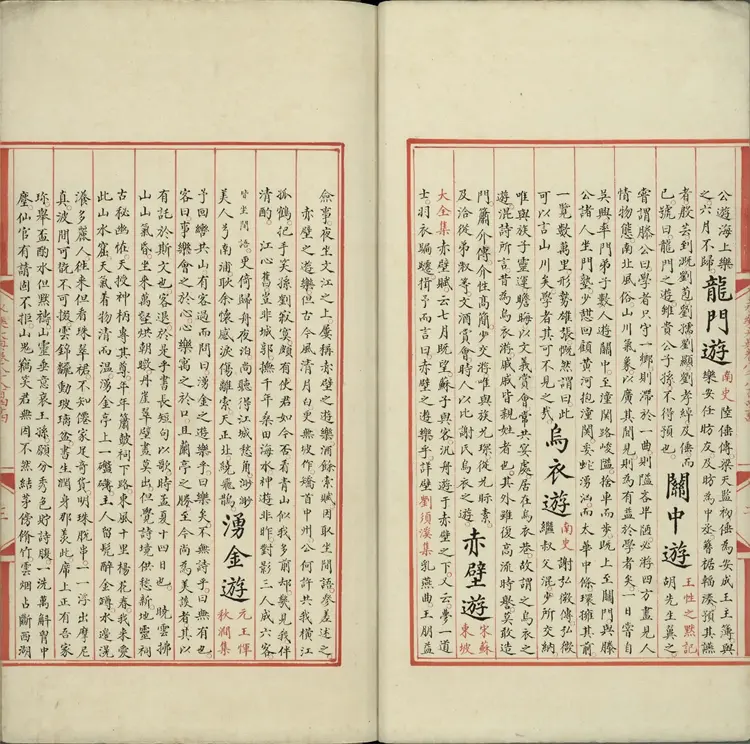 公遊海上樂
之六月不歸
龍門遊
南史陸倕傳梁天監初倕為安成王主簿與
樂安任昉友及昉為中丞簪裾輻湊預其讌
者殷芸到溉劉苞劉孺劉顯劉孝綽及倕而
已號曰龍門之遊雖貴公子孫不得預也
關中遊
王性之默記
胡先生翼之
嘗謂滕公曰學者只守一鄉則滯於一曲則隘吝卑陋必游四方盡見人
情物態南北風俗山川氣象以廣其聞見則為有益於學者矣一日嘗自
吳興率門弟子數人遊關中至潼關路峻隘捨車而步既上至關門與滕
公諸人坐門塾少憇回顧黃河抱潼關委蛇洶湧而太華中條環擁其前
一覽數萬里形勢雄張慨然謂曰此
可以言山川矣學者其可不見之哉
烏衣遊
南史謝弘微傳弘微
繼叔父混少所交納
唯與族子靈運瞻晦以文義賞會常共宴處居在烏衣巷故謂之烏衣之
遊混詩所言昔為烏衣游戚戚皆親姓者也其外雖復高流時譽莫敢造
門蕭介傳介性高簡少交游唯與族兄琛從兄眎素
及洽從弟淑等文酒賞會時人以比謝氏烏衣之遊
赤壁遊
宋蘇
東坡
大全集赤壁賦云七月既望蘇子與客泛舟遊于赤壁之下又云夢一道
士羽衣蹁躚揖予而言曰赤壁之遊樂乎詳壁劉須溪集乳燕曲王朋益
僉事夜坐文江之上屢稱赤壁之遊樂酒餘索賦因取坐間語參差述之
赤壁之遊樂但古今風清月白更無坡作矯首中州公何許共我橫江
孤鶴把手笑孫劉寂寞頗有使君如今否看青山似我多前却幾見我伴
清酌江心舊豈非城郭撫千年桑田海水神遊非昨對影三人成六客
皆坐間語更倚歸舟夜泊尚聽得江城愁角渺渺
美人兮南浦耿余懷感淚傷離索天正北繞飛鵲
湧金遊
元王惲
秋澗集
予回轡共山有客過而問曰湧金之遊樂乎曰樂矣不無詩乎曰無有也
客曰事樂會之於心心樂寓之於口且蘭亭之勝至今尚為美談者其以
有託於斯文也客退於是乎書長短句以歌時孟夏十四日也曉雲拂
山山氣昏坐來萬壑烘朝暾丹崖草壁畫莫出但覺詩境供愁新地靈祠
古秘幽依天授神柄專其尊年年簫鼓祠下路東風十里楊花春我來愛
此山水窟天氣着物清而溫湧金亭上一主人留髡醉金罇水邊滉
瀁多麗人往來但看珠翠裙不知濃家足奇貨明珠脫串一一浮出摩尼
真波間可翫不可掇雲錦動玻璃盆書生潤身郡羨此席上正有吾家
珍舉盃酌水但默禱山靈垂意哀王孫願分秀色貯詩腹一洗萬斛胷中
塵仙官有請固不拒山思稿矣君無因不然結茅傍脩竹雲烟占斷西湖